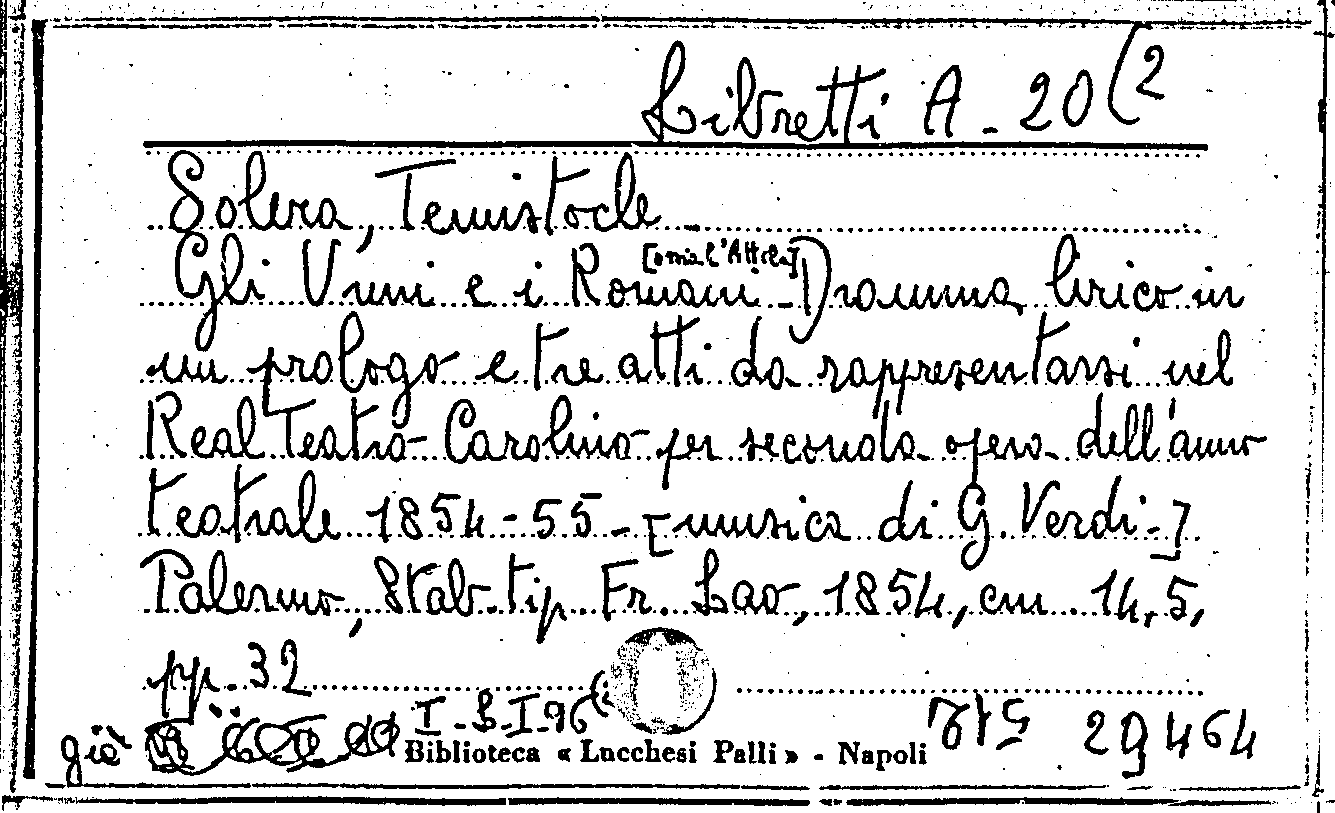 Libretti A - 20(2
Solera, Temistocle
Gli Unni e i Romani [ossia l'Attila] - Dramma lirico in
un prologo e tre atti da rappresentarsi nel
Real Teatro Carolino per seconda opera dell'anno
teatrale 1854-55 - [musica di G. Verdi -]
Palermo, Stab. tip. Fr. Lao, 1854, cm. 14,5,
pp. 32
già I-B-I-96(
Biblioteca « Lucchesi Palli » - Napoli
29464